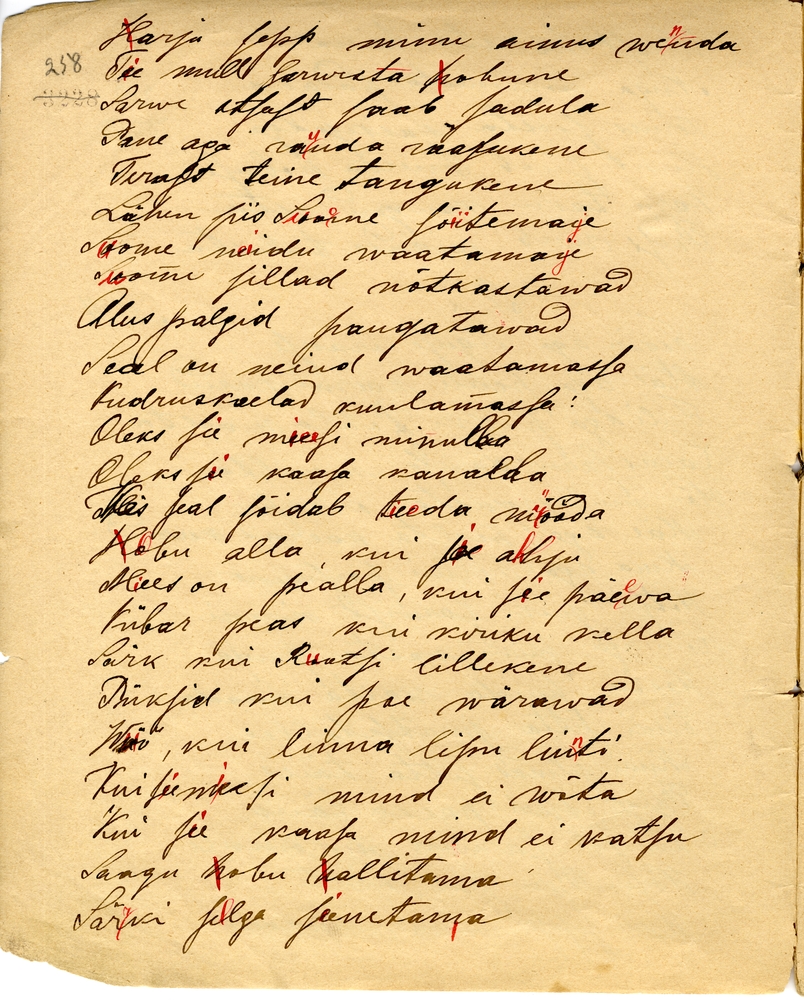 258
3328
Harja sepp minu ainus wenda
Tie mull Sarwista hobune
Sarwe otsast saab sadula
Pane aga rauda rääsukene
Terast teine tangukene
Lähen siis Soome sõitemaije
Soome neidu waatamaije
Soome sillad nõtkastawad
Alus palgid paugatawad
Seal on neiud waatamassa
Kudruskaelad kuulamassa!
Oleks sie miesi minulla
Oleks sie kaasa kaualda
Mies seal sõidab tieda müöda
Hobu alla, kui sie ahju
Mies on pealla, kui sie päewa
Kübar peas kui kiriku kella
Särk kui Ruutsi lillekene
Püksid kui poe wärawad
Wöö, kui linna lipu linti.
Kui sie miesi mind ei wõta
Kui sie kaasa mind ei katsu
Saagu hobu hallitama
Särki selga sienetama